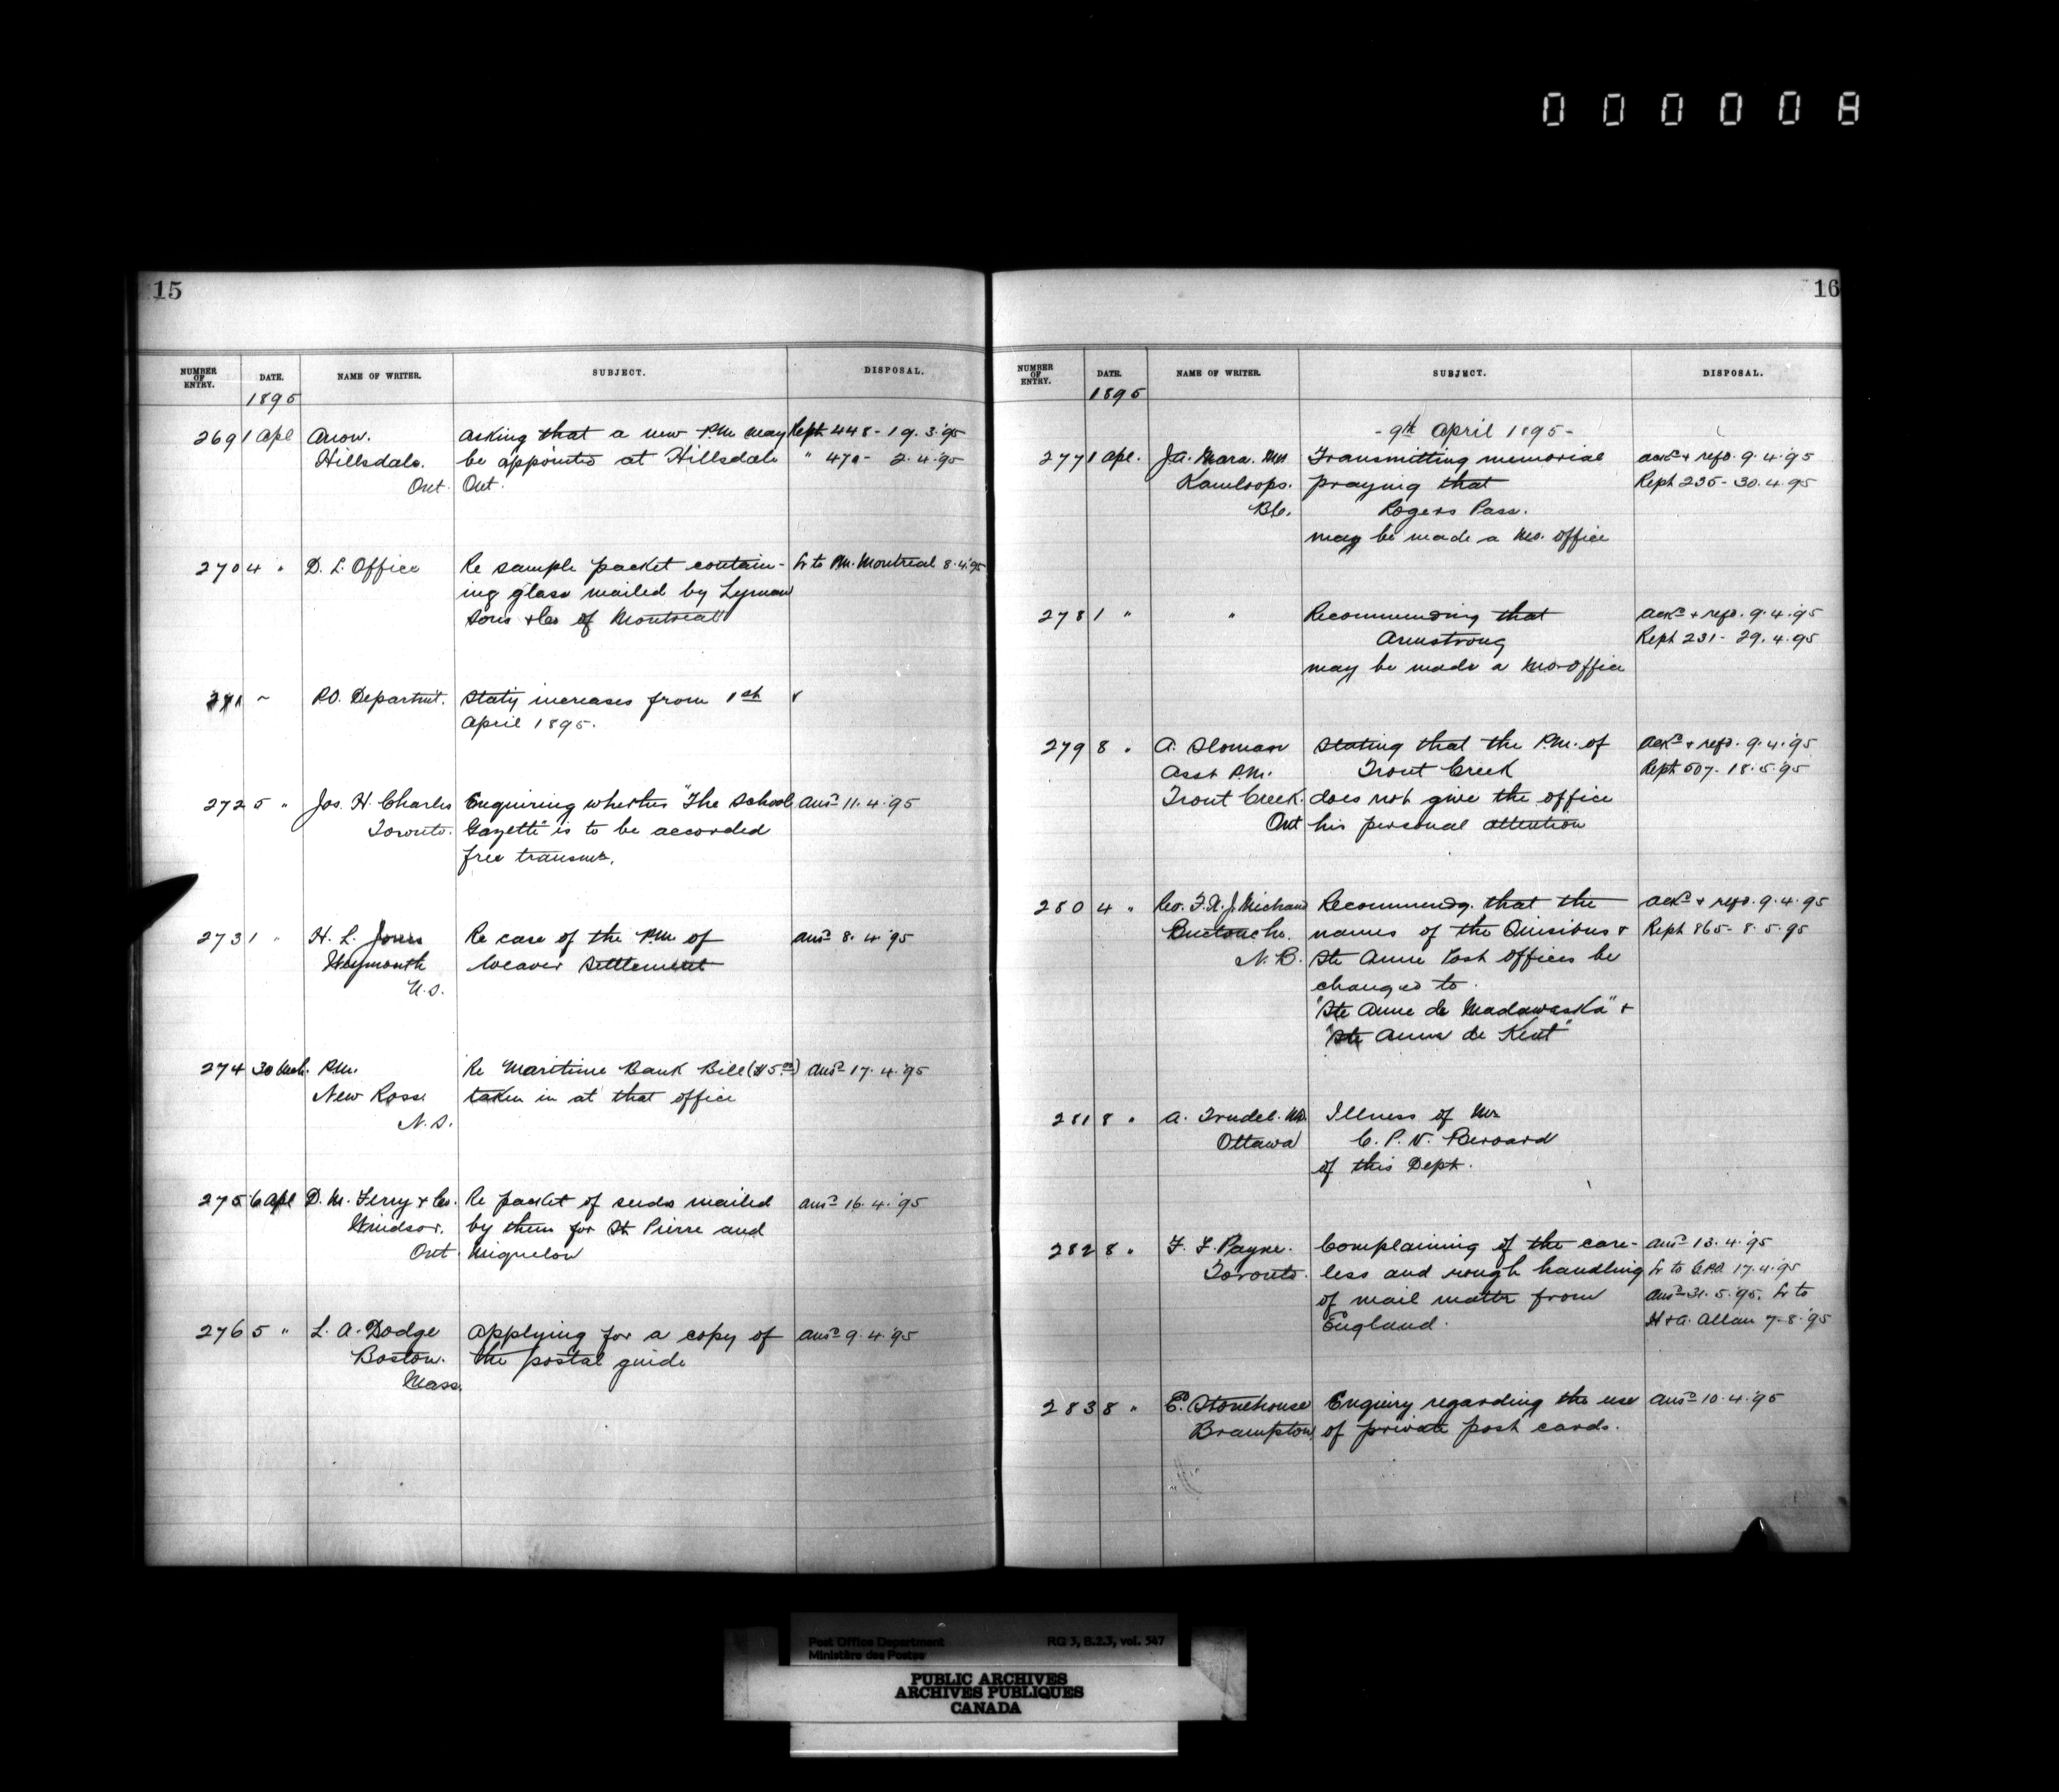 000008
15
NUMBER OF ENTRY. DATE. NAME OF WRITER. SUBJECT. DISPOSAL.
1895
269 1 Apl Anon. Asking that a new P.M. may Rept 448 - 19.3.'95
Hillsdale. be appointed at Hillsdale " 471 - 2.4.'95
Ont. Ont.
270 4 " D. L. Office Re sample packet contain- Lr to P.M. Montreal 8.4.'95
ing glass mailed by Lyman
Sons & Co of Montreal
271 ~ P.O. Departmt. Staty increases from 1st
April 1895.
272 5 " Jos. H. Charles Enquiring whether "The School Ansd 11.4.'95
Toronto. Gazette" is to be accorded
free transmn.
273 1 " H. L. Jones Re case of the P.M. of Ansd 8.4.'95
Weymouth Weaver Settlement
N.S.
274 30 Mch. P.M. Re Maritime Bank Bill ($5.00) Ansd 17.4.'95
New Ross taken in at that office
N.S.
275 6 Apl D. M. Ferry & Co. Re packet of seeds mailed Ansd 16.4.'95
Windsor. by them for St. Pierre and
Ont. Miquelon
276 5 " L. A. Dodge Applying for a copy of Ansd 9.4.'95
Boston. the postal guide
Mass.
16
NUMBER OF ENTRY. DATE. NAME OF WRITER. SUBJECT. DISPOSAL.
1895
- 9th April 1895 -
277 1 Apl. J.A. Mara. MP Transmitting memorial Ackd & refd. 9.4.'95
Kamloops. praying that Rept 235 - 30.4.'95
B.C. Rogers Pass.
may be made a M.O. office
278 1 " " Recommending that Ackd & refd. 9.4.'95
Armstrong Rept 231 - 29.4.'95
may be made a M.O. office
279 8 " A. Sloman Stating that the P.M. of Ackd & refd. 9.4.'95
Asst P.M. Trout Creek Rept 507 - 18.5.'95
Trout Creek. does not give the office
Ont his personal attention
280 4 " Rev. F.X.J. Michaud Recommendg. that the Ackd & refd. 9.4.'95
Buctouche. names of the Quisibus & Rept 865 - 8.5.'95
N.B. Ste Anne Post Offices be
changed to.
"Ste Anne de Madawaska" &
"Ste Anne de Kent"
281 8 " A. Trudel. MD. Illness of Mr
Ottawa C. P. V.
of this Dept.
282 8 " F. F. Payne. Complaining of the care- Ansd 13.4.'95
Toronto. less and rough handling Lr to G.P.O. 17.4.'95
of mail matter from Ansd 31.5.'95. Lr to
England. H & A. Allan 7.8.'95
283 8 " Ed. Stonehouse Enquiry regarding the use Ansd 10.4.'95
Brampton of private post cards.
Post Office Department RG 3, B.2.3, vol. 547
Ministère des Postes
PUBLIC ARCHIVES
ARCHIVES PUBLIQUES
CANADA